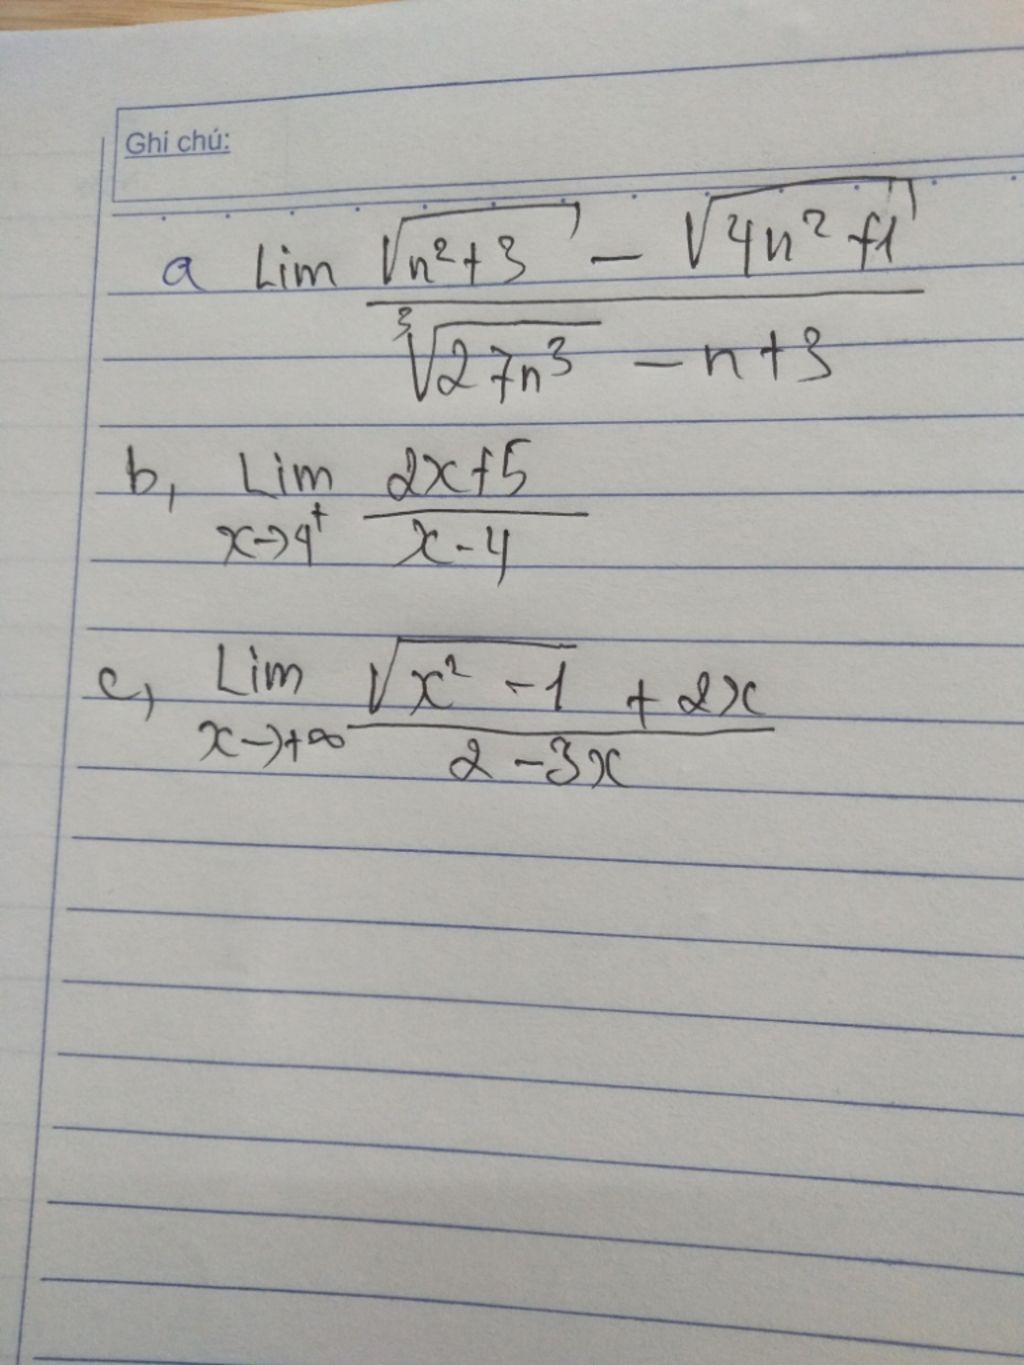 Ghi chú:
a Lim (√(n²+3) - √(4n²+1)) / (³√(27n³) - n+3)
b, Lim x→4⁺ (2x+5) / (x-4)
c, Lim x→+∞ (√(x²-1) + 2x) / (2-3x)